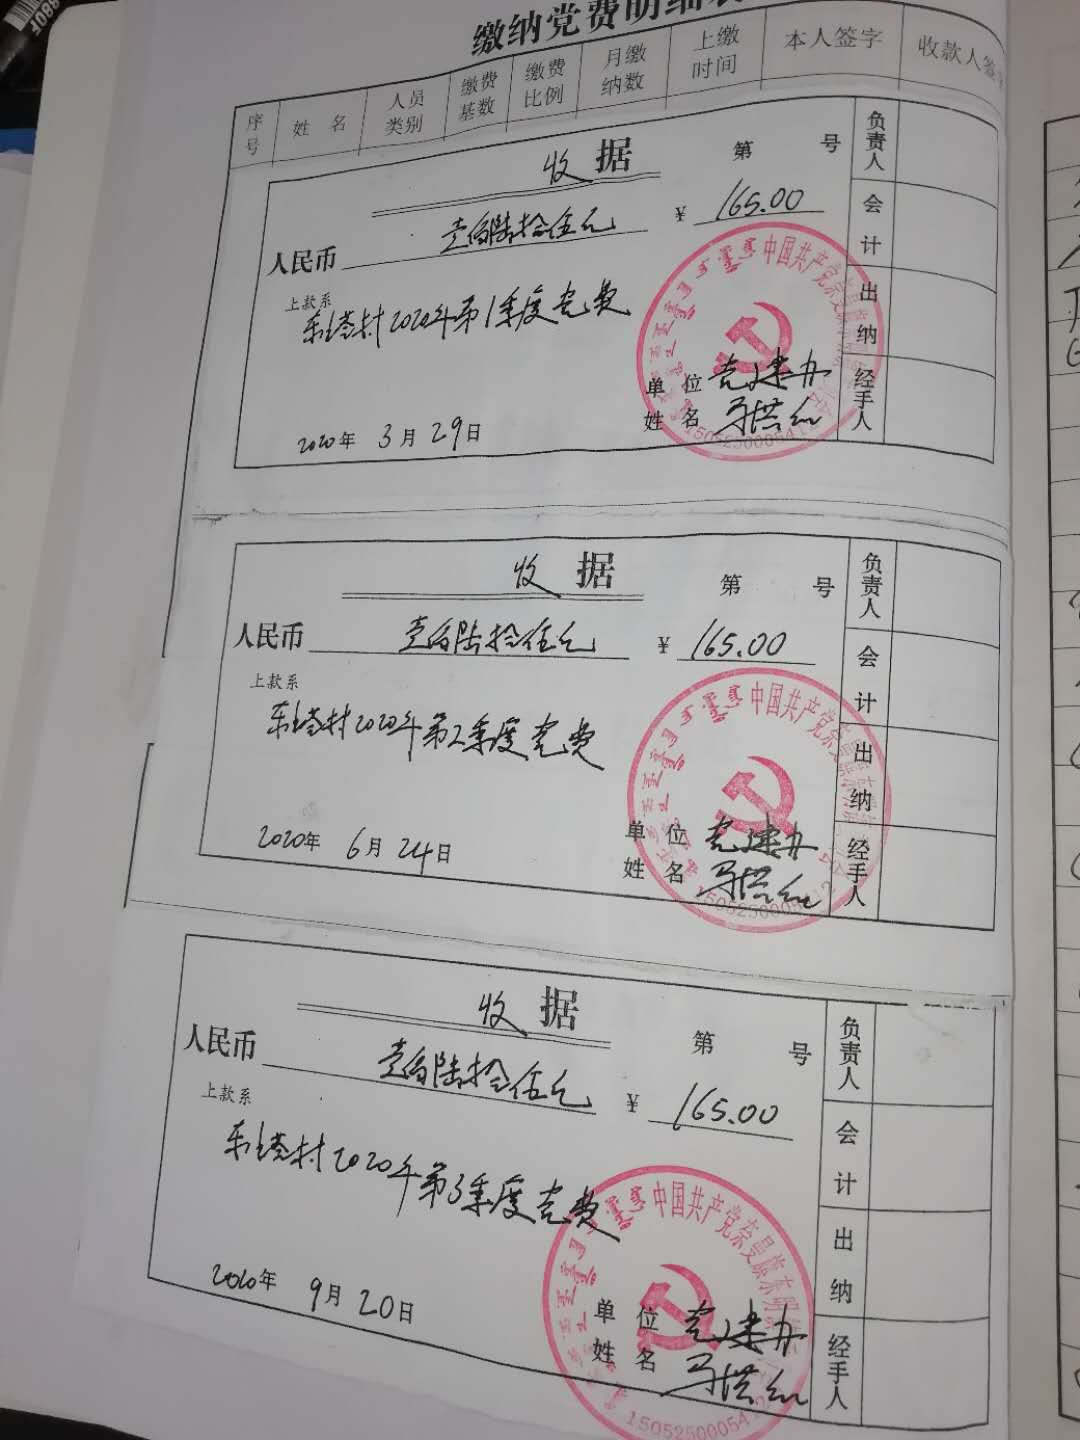 缴纳党费明细表
序号 姓名 人员类别 缴费基数 缴费比例 月缴纳数 上缴时间 本人签字 收款人签
收据 第 号
人民币 壹佰陆拾伍元 ¥ 165.00
上款系
东塔村2020年第1季度党费
单位 党建办
姓名 马洪红
2020年 3月29日
负责人
会计
出纳
经手人
中国共产党奈曼旗
收据 第 号
人民币 壹佰陆拾伍元 ¥ 165.00
上款系
东塔村2020年第2季度党费
单位 党建办
姓名 马洪红
2020年 6月24日
负责人
会计
出纳
经手人
中国共产党奈曼旗
收据 第 号
人民币 壹佰陆拾伍元 ¥ 165.00
上款系
东塔村2020年第3季度党费
单位 党建办
姓名 马洪红
2020年 9月20日
负责人
会计
出纳
经手人
中国共产党奈曼旗东明